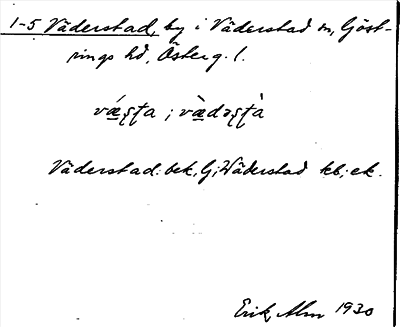 1-5 Väderstad, by i Väderstad sn, Göst-
rings hd, Österg. l.
væ̀ʂʈa ; væ̀dəʂʈà
Väderstad: bek, G; Wäderstad kb; ek.
Erik Alm 1930